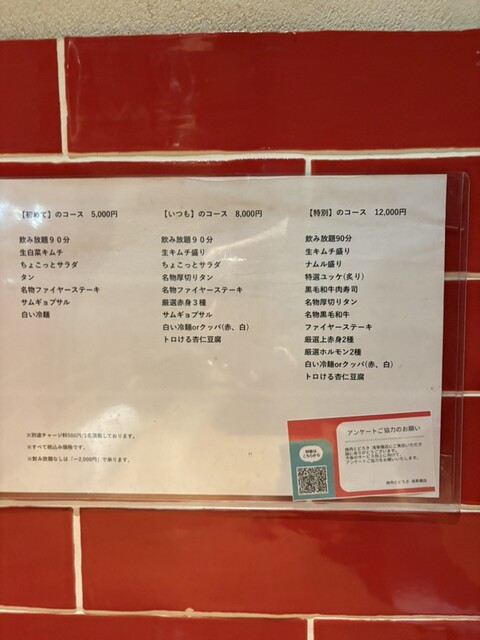 【初めて】のコース 5,000円
飲み放題９０分
生白菜キムチ
ちょこっとサラダ
タン
名物ファイヤーステーキ
サムギョプサル
白い冷麺
【いつも】のコース 8,000円
飲み放題９０分
生キムチ盛り
ちょこっとサラダ
名物厚切りタン
名物ファイヤーステーキ
厳選赤身３種
サムギョプサル
白い冷麺orクッパ(赤、白)
トロける杏仁豆腐
【特別】のコース 12,000円
飲み放題90分
生キムチ盛り
ナムル盛り
特選ユッケ(炙り)
黒毛和牛肉寿司
名物厚切りタン
名物黒毛和牛
ファイヤーステーキ
厳選上赤身2種
厳選ホルモン2種
白い冷麺orクッパ(赤、白)
トロける杏仁豆腐
※別途チャージ料500円/1名頂戴しております。
※すべて税込み価格です。
※飲み放題なしは「ー2,000円」で承ります。
アンケートご協力のお願い
回答は
こちらから
誠にありがとうございます。
今後のサービス向上に向けて、
アンケートご協力をお願いいたします。